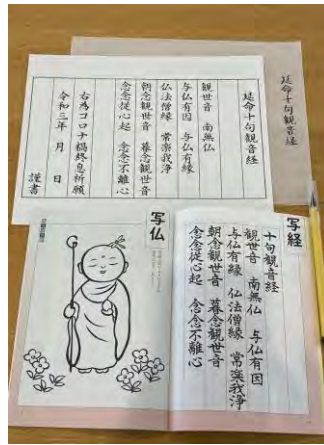 延命十句観音経
延命十句観音経
観世音　南無仏
与仏有因　与仏有縁
仏法僧縁　常楽我浄
朝念観世音　暮念観世音
念念従心起　念念不離心
右為コロナ禍終息祈願
令和三年　月　日
謹書
写経
十句観音経
観世音　南無仏　与仏有因
与仏有縁　仏法僧縁　常楽我浄
朝念観世音　暮念観世音
念念従心起　念念不離心
写仏